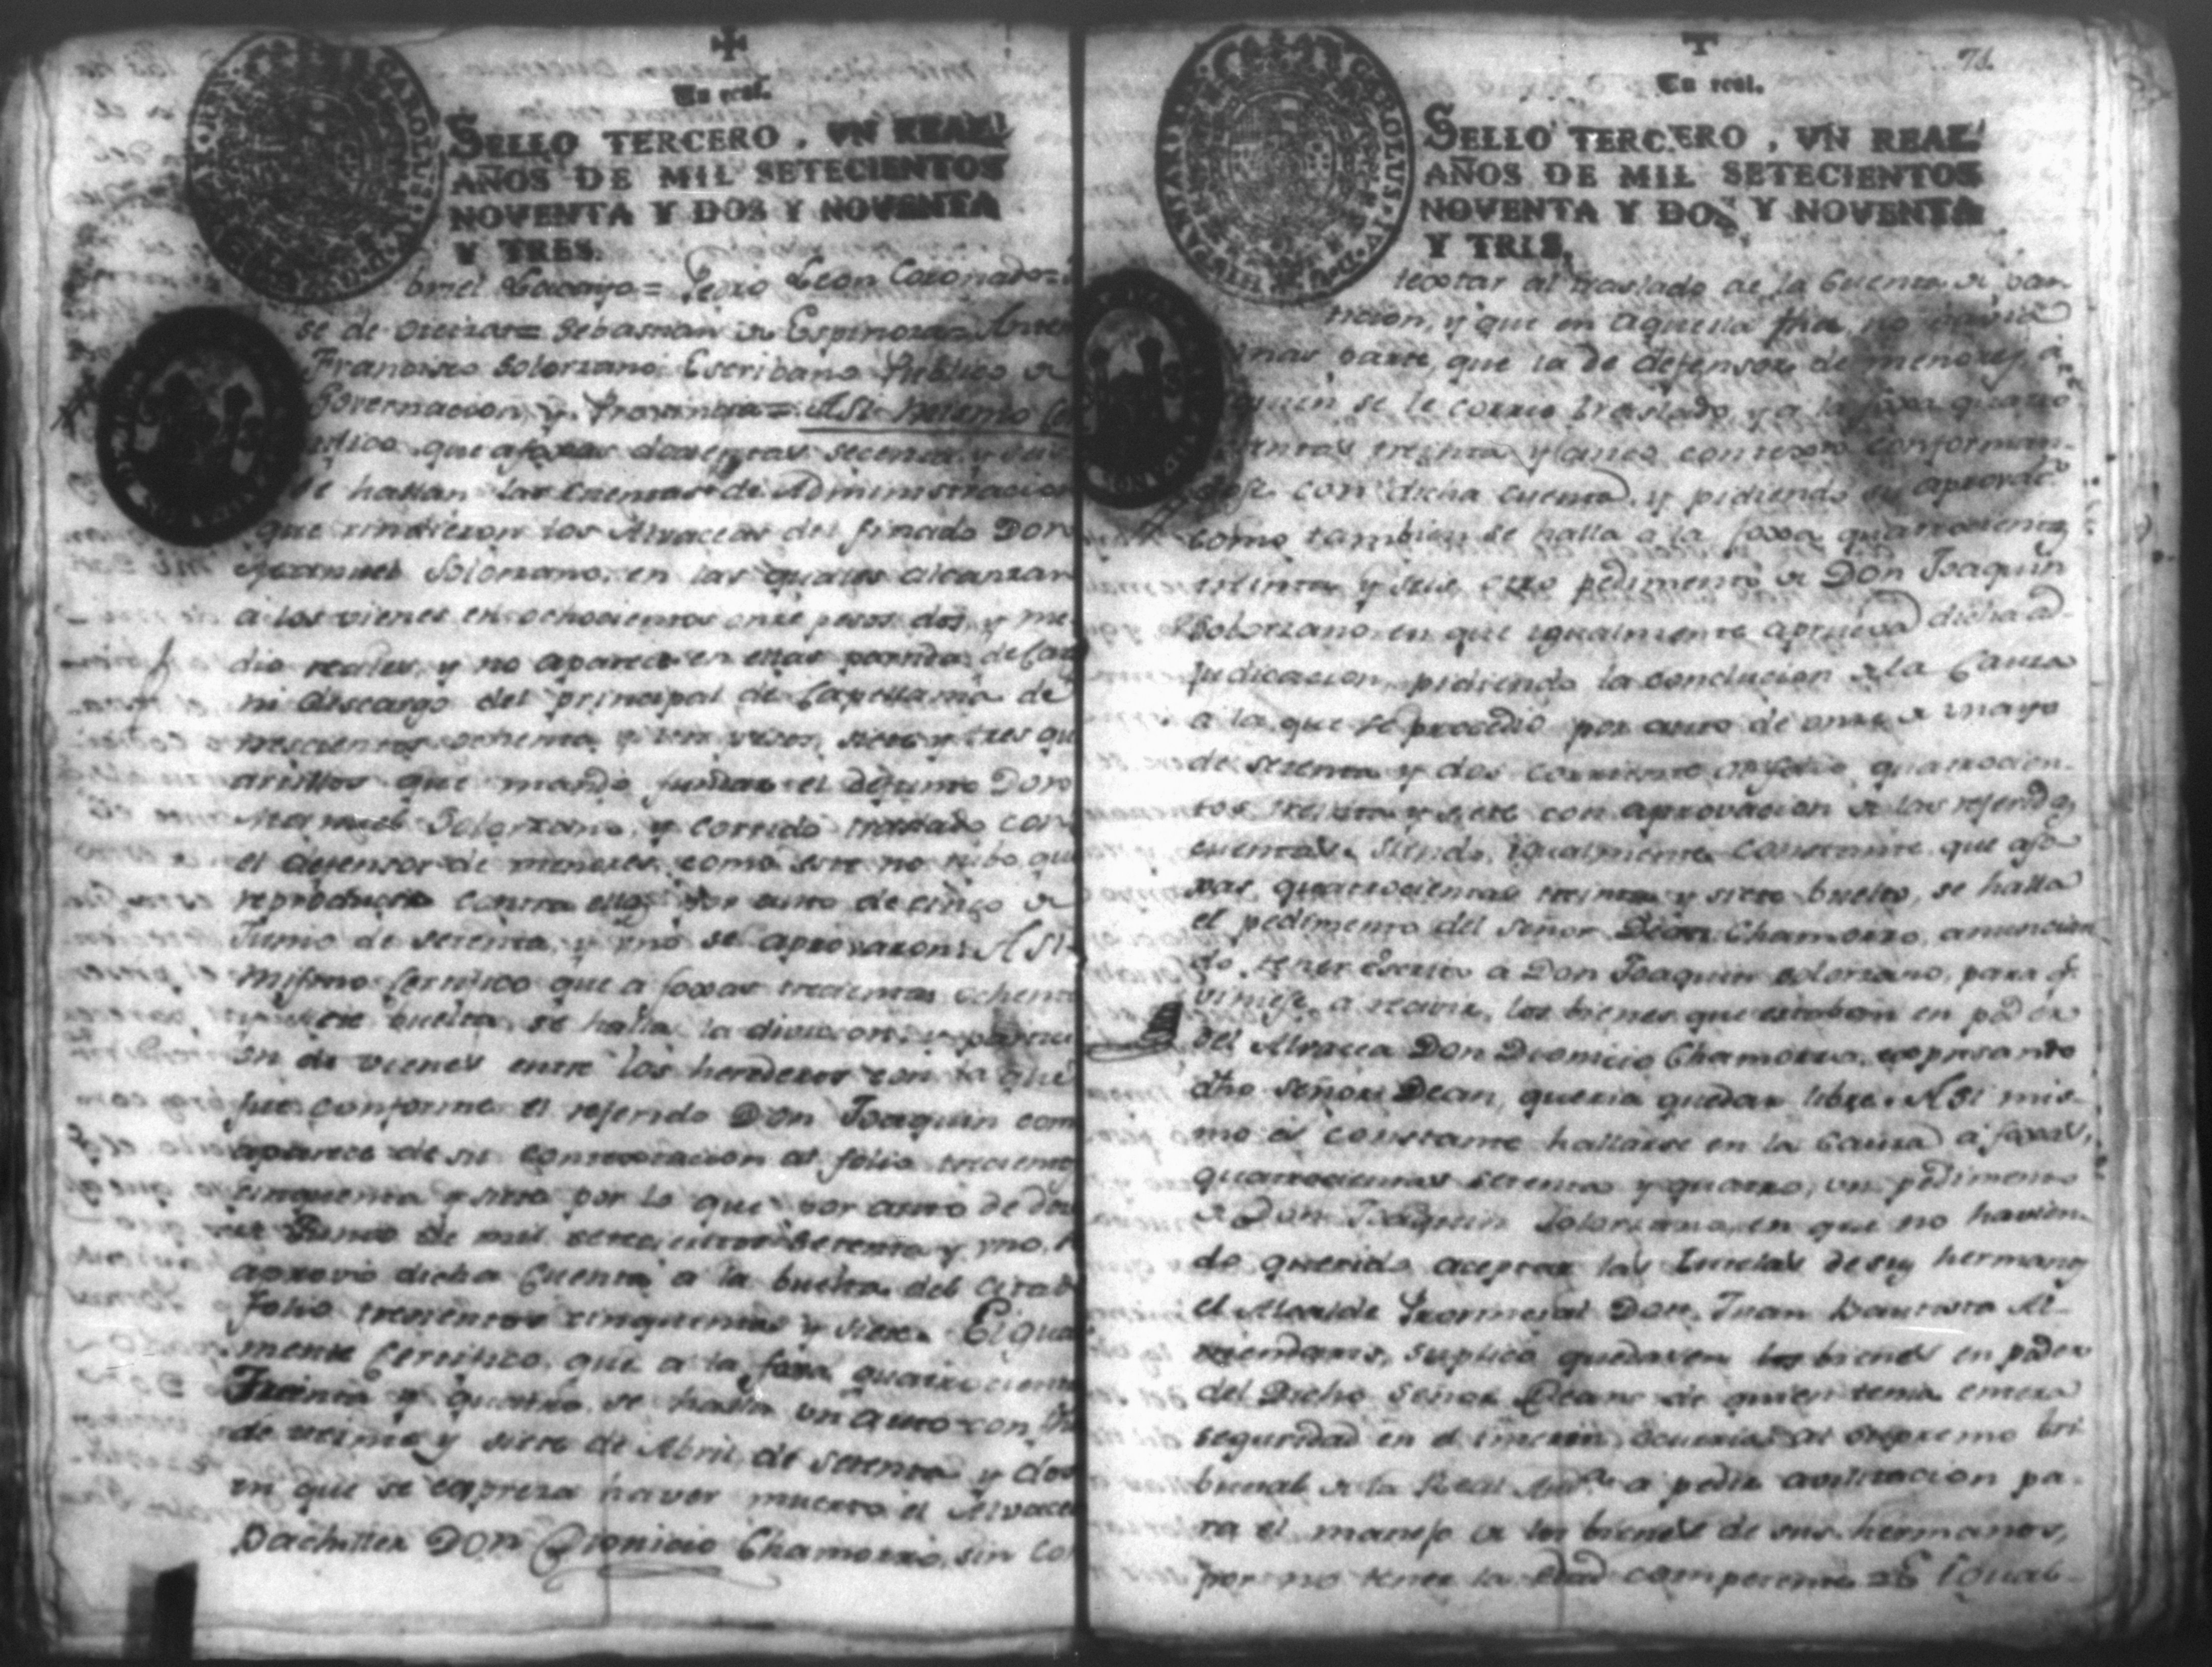 Un real.
SELLO TERCERO, VN REAL
AÑOS DE MIL SETECIENTOS
NOVENTA Y DOS Y NOVENTA
Y TRES.
briel Lacayo = Pedro Leon Coronado =
se de = Sebastian de Espinoza = Ante
Francisco Solorzano Escribano Publico de
Governacion, y Provincia = Asi mismo Ce
tifico que afoxas docientas secenta y seis
se hallan las cuentas de Administracion
que rindieron los Alvaceas del finado Don
Manuel Solorzano, en las quales alcanzan
a los vienes en ochocientos onze pesos dos, y me
dio reales, y no aparece en ellas partida de Car
ni descargo del principal de Capellania de
trescientos ochenta y un pesos, siete y tres qu
artillos que mandó fundar el defunto Don
Manuel Solorzano, y corrido traslado con
el defensor de menores, como este no tubo que
reproducir contra ellas por auto de cinco de
Junio de setenta, y uno se aprovaron: Asi-
mismo Certifico que a foxas trecientas ochenta
y siete buelta, se halla la division, y partici
on de vienes entre los herederos con la que
fue conforme el referido Don Joaquin com
aparece de su contestacion al folio trecientos
cinquenta y siete por lo que por auto de dos
de Junio de mil setecientos setenta y uno, s
aprovó dicha Cuenta a la buelta del citad
folio trecientos cinquenta y siete. E igual
mente Certifico, que a la foxa quatrocienta
Treinta y quatro, se halla un auto con fha
de veinte y siete de Abril de setenta y dos
en que se expreza haver muerto el Alvacea
Bachiller Don Dionicio Chamorro, sin con
71
Un real.
SELLO TERCERO, VN REAL
AÑOS DE MIL SETECIENTOS
NOVENTA Y DOS Y NOVENTA
Y TRES.
testar al traslado de la Cuenta de par-
ticion, y que en aquella fha no havia
mas parte, que la de defensor de menores a
quien se le corrio traslado, y a la foxa quatro
cientas treinta y cinco contestó conforman-
dose con dicha cuenta, y pidiendo su aprovac.n
como tambien se halla a la foxa quatrocientas
treinta y seis, otro pedimento de Don Joaquin
Solorzano en que igualmente aprueva dicha ad-
judicacion, pidiendo la conclucion de la Cauza
a la que se procedio por auto de onze de mayo
de setenta y dos corriente al folio quatrocien-
tos treinta y siete con aprovacion de las referidas
cuentas. Siendo igualmente constante que afo-
xas quatrocientas treinta y siete buelta, se halla
el pedimento del Señor Dean Chamorro, anuncian
do tener escrito a Don Joaquin Solorzano, para q.e
viniese a recivir los bienes que estaban en poder
del Alvacea Don Dionicio Chamorro, expresando
dho Señor Dean, queria quedar libre. Asi mis-
mo es constante hallarse en la Cauza a foxas,
quatrocientas setenta y quatro, un pedimento
de Don Joaquin Solorzano en que no havien-
do querido aceptar las tutelas de sus hermanos
el Alcalde Provincial Don Juan Bautista Al-
mendares, suplicó quedasen los bienes en poder
del Dicho Señor Dean de quien tenia entera
seguridad en el interin, ocurria al supremo tri
bunal de la Real Aud.a a pedir avilitacion pa-
ra el manejo de los bienes de sus hermanos,
por no tener la edad competente = E Igual-